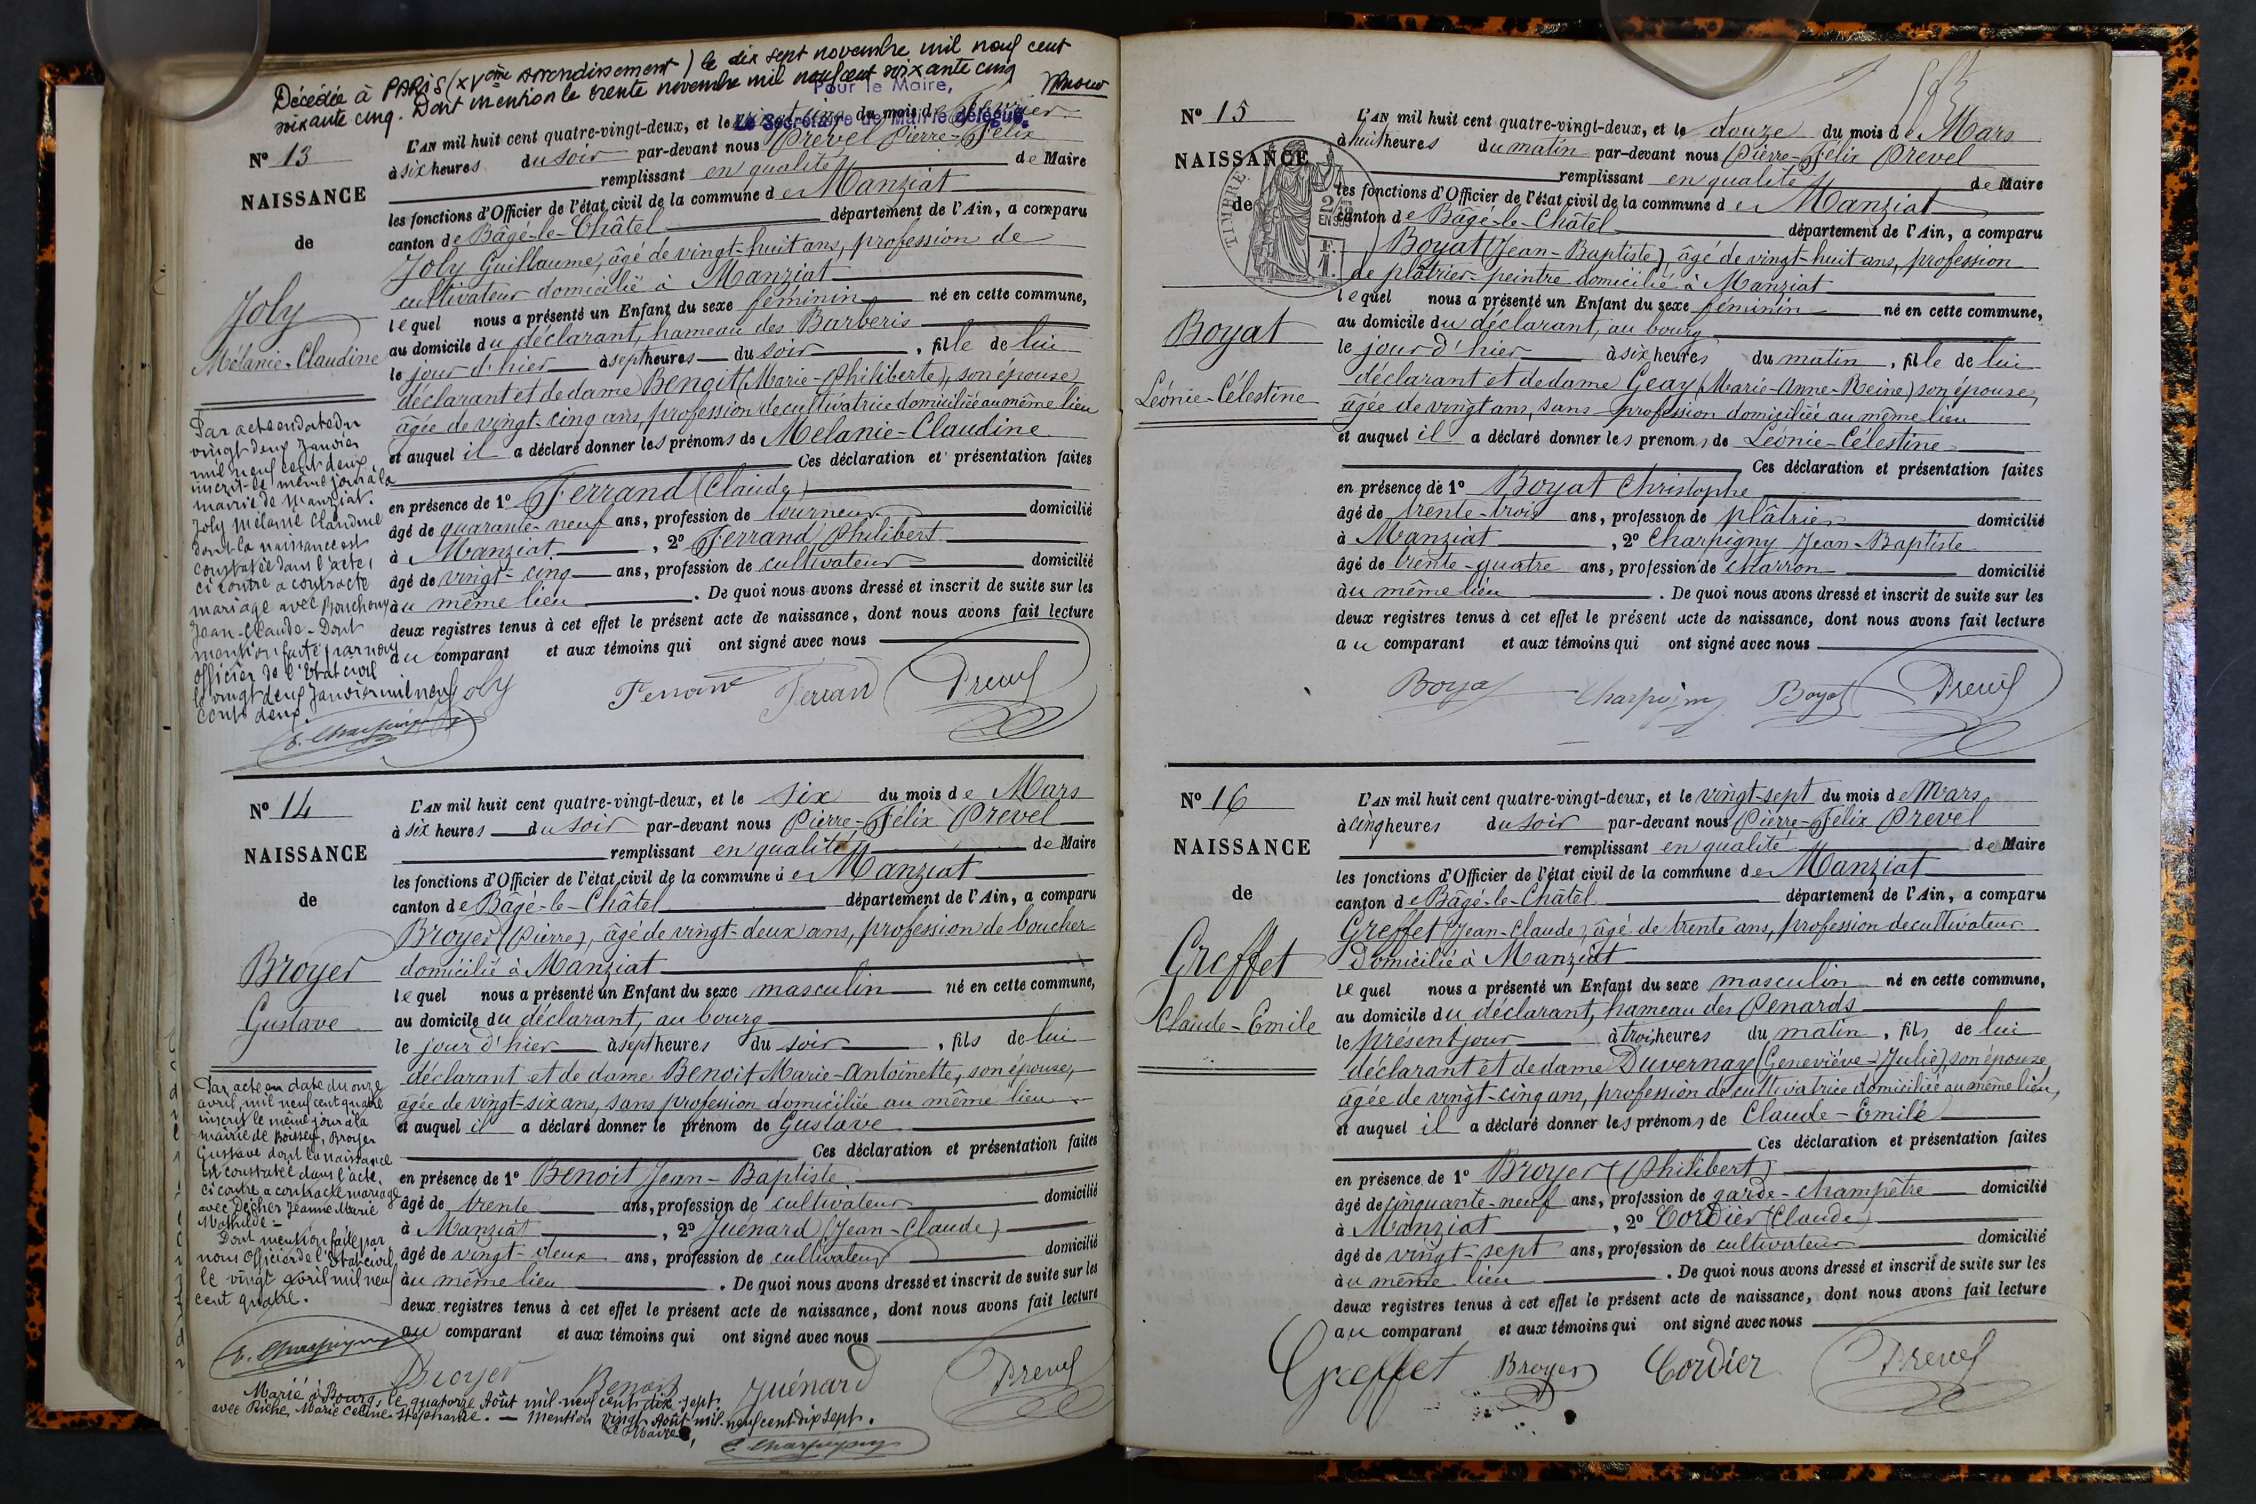 Décédée à PARIS (XVème Arrondissement) le dix sept novembre mil neuf cent
soixante cinq. Dont mention le trente novembre mil neuf cent soixante cinq
Pour le Maire,
Le Secrétaire de Mairie délégué.
N° 13
NAISSANCE
de
Joly
Mélanie-Claudine
Par acte en date du
vingt deux Janvier
mil neuf cent deux
inscrit le même jour à la
mairie de Manziat.
Joly Mélanie Claudine
dont la naissance est
constatée dans l'acte
ci contre a contracté
mariage avec Bouchoux
Jean-Claude - Dont
mention faite par nous
officier de l'Etat civil
le vingt deux Janvier mil neuf
cent deux.
L'AN mil huit cent quatre-vingt-deux, et le vingt cinq du mois de Février
à six heures du soir par-devant nous Prevel Pierre-Félix
remplissant en qualité de Maire
les fonctions d'Officier de l'état civil de la commune de Manziat
canton de Bâgé-le-Châtel département de l'Ain, a comparu
Joly Guillaume, âgé de vingt-huit ans, profession de
cultivateur domicilié à Manziat
lequel nous a présenté un Enfant du sexe féminin né en cette commune,
au domicile du déclarant, hameau des Barberis
le jour d'hier à sept heures du soir, fille de lui
déclarant et de dame Benoit (Marie-Philiberte), son épouse
âgée de vingt-cinq ans, profession de cultivatrice domiciliée au même lieu
et auquel il a déclaré donner les prénoms de Mélanie-Claudine
Ces déclaration et présentation faites
en présence de 1° Ferrand (Claude)
âgé de quarante-neuf ans, profession de tourneur domicilié
à Manziat, 2° Ferrand Philibert
âgé de vingt-cinq ans, profession de cultivateur domicilié
au même lieu. De quoi nous avons dressé et inscrit de suite sur les
deux registres tenus à cet effet le présent acte de naissance, dont nous avons fait lecture
au comparant et aux témoins qui ont signé avec nous
Joly Ferrand Ferrand Prevel
E. Charpigny
N° 14
NAISSANCE
de
Broyer
Gustave
Par acte en date du onze
avril mil neuf cent quatre
inscrit le même jour à la
mairie de Boissey, Broyer
Gustave dont la naissance
est constatée dans l'acte
ci contre a contracté mariage
avec Décher Jeanne Marie
Mathilde -
Dont mention faite par
nous Officier de l'Etat civil
le vingt avril mil neuf
cent quatre.
E. Charpigny
L'AN mil huit cent quatre-vingt-deux, et le six du mois de Mars
à six heures du soir par-devant nous Pierre-Félix Prevel
remplissant en qualité de Maire
les fonctions d'Officier de l'état civil de la commune de Manziat
canton de Bâgé-le-Châtel département de l'Ain, a comparu
Broyer (Pierre), âgé de vingt-deux ans, profession de boucher
domicilié à Manziat
lequel nous a présenté un Enfant du sexe masculin né en cette commune,
au domicile du déclarant, au bourg
le jour d'hier à sept heures du soir, fils de lui
déclarant et de dame Benoit Marie-Antoinette, son épouse,
âgée de vingt-six ans, sans profession domiciliée au même lieu
et auquel il a déclaré donner le prénom de Gustave
Ces déclaration et présentation faites
en présence de 1° Benoit Jean-Baptiste
âgé de trente ans, profession de cultivateur domicilié
à Manziat, 2° Juénard (Jean-Claude)
âgé de vingt-deux ans, profession de cultivateur domicilié
au même lieu. De quoi nous avons dressé et inscrit de suite sur les
deux registres tenus à cet effet le présent acte de naissance, dont nous avons fait lecture
au comparant et aux témoins qui ont signé avec nous
Broyer Benoit Juénard Prevel
Marié à Bourg, le quatorze Août mil-neuf cent-dix-sept
avec Riche Marie Céline Stéphanie. — Mention vingt Août mil-neuf cent dix sept.
Le Maire,
E. Charpigny
N° 15
NAISSANCE
de
TIMBRE
2/10 EN SUS
Boyat
Léonie-Célestine
L'AN mil huit cent quatre-vingt-deux, et le douze du mois de Mars
à huit heures du matin par-devant nous Pierre-Félix Prevel
remplissant en qualité de Maire
les fonctions d'Officier de l'état civil de la commune de Manziat
canton de Bâgé-le-Châtel département de l'Ain, a comparu
Boyat (Jean-Baptiste), âgé de vingt-huit ans, profession
de plâtrier-peintre domicilié à Manziat
lequel nous a présenté un Enfant du sexe féminin né en cette commune,
au domicile du déclarant, au bourg
le jour d'hier à six heures du matin, fille de lui
déclarant et de dame Geay (Marie-Anne-Reine) son épouse,
âgée de vingt ans, sans profession domiciliée au même lieu
et auquel il a déclaré donner les prénoms de Léonie-Célestine
Ces déclaration et présentation faites
en présence de 1° Boyat Christophe
âgé de trente-trois ans, profession de plâtrier domicilié
à Manziat, 2° Charpigny Jean-Baptiste
âgé de trente-quatre ans, profession de charron domicilié
au même lieu. De quoi nous avons dressé et inscrit de suite sur les
deux registres tenus à cet effet le présent acte de naissance, dont nous avons fait lecture
au comparant et aux témoins qui ont signé avec nous
Boyat Charpigny Boyat Prevel
N° 16
NAISSANCE
de
Greffet
Claude-Emile
L'AN mil huit cent quatre-vingt-deux, et le vingt-sept du mois de Mars
à cinq heures du soir par-devant nous Pierre-Félix Prevel
remplissant en qualité de Maire
les fonctions d'Officier de l'état civil de la commune de Manziat
canton de Bâgé-le-Châtel département de l'Ain, a comparu
Greffet (Jean-Claude), âgé de trente ans, profession de cultivateur
domicilié à Manziat
lequel nous a présenté un Enfant du sexe masculin né en cette commune,
au domicile du déclarant, hameau des Penards
le présent jour à trois heures du matin, fils de lui
déclarant et de dame Duvernay (Geneviève-Julie), son épouse
âgée de vingt-cinq ans, profession de cultivatrice domiciliée au même lieu,
et auquel il a déclaré donner les prénoms de Claude-Emile
Ces déclaration et présentation faites
en présence de 1° Broyer (Philibert)
âgé de cinquante-neuf ans, profession de garde-champêtre domicilié
à Manziat, 2° Cordier (Claude)
âgé de vingt-sept ans, profession de cultivateur domicilié
au même lieu. De quoi nous avons dressé et inscrit de suite sur les
deux registres tenus à cet effet le présent acte de naissance, dont nous avons fait lecture
au comparant et aux témoins qui ont signé avec nous
Greffet Broyer Cordier Prevel